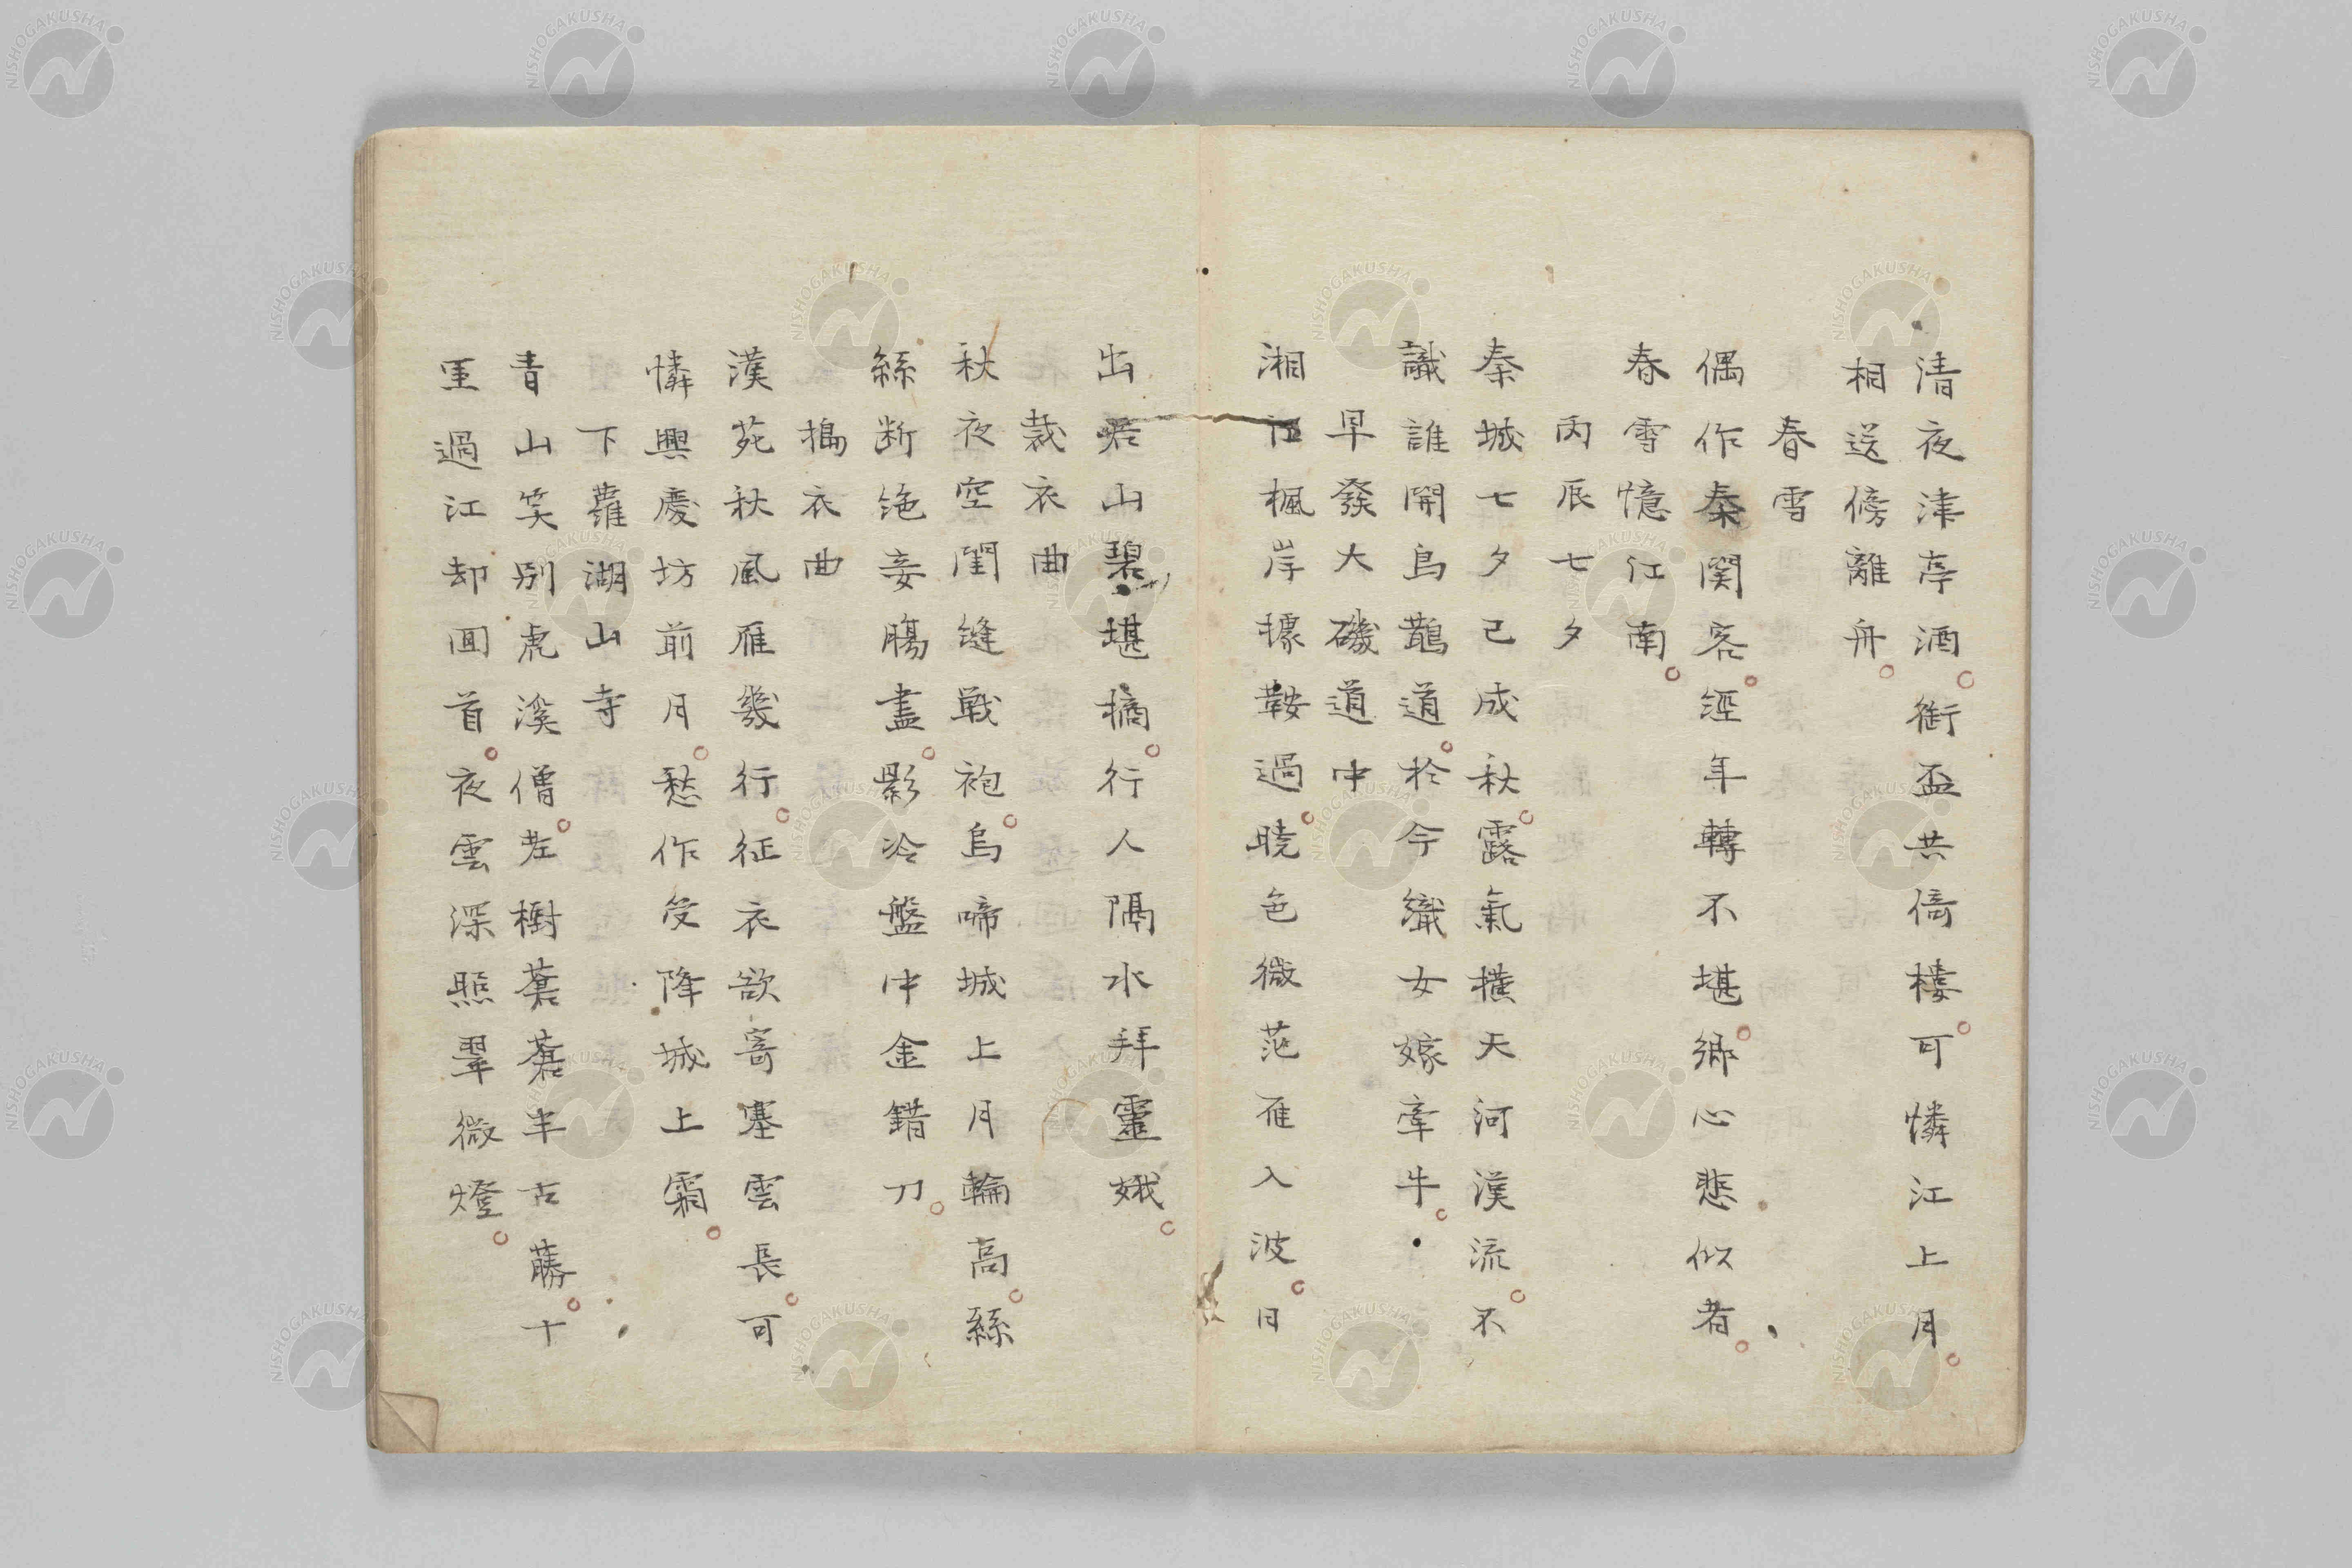 清夜津亭酒銜盃共倚樓可憐江上月
相送傍離舟
春雪
偶作秦関客經年轉不堪鄉心悲似者
春雪憶江南
丙辰七夕
秦城七夕已成秋露氣横天河漢流不
識誰開烏鵲道於今織女嫁牽牛
早發大磯道中
湘江楓岸據鞍過曉色微茫雁入波日
出君山碧堪摘行人隔水拜靈娥
裁衣曲
秋夜空閨縫戰袍烏啼城上月輪高絲
絲断絶妾腸盡影冷盤中金錯刀
擣衣曲
漢苑秋風雁幾行征衣欲寄塞雲長可
憐興慶坊前月愁作受降城上霜
下蘿湖山寺
青山笑別虎溪僧老樹蒼蒼半古藤十
里過江却回首夜雲深照翠微燈
NISHOGAKUSHA